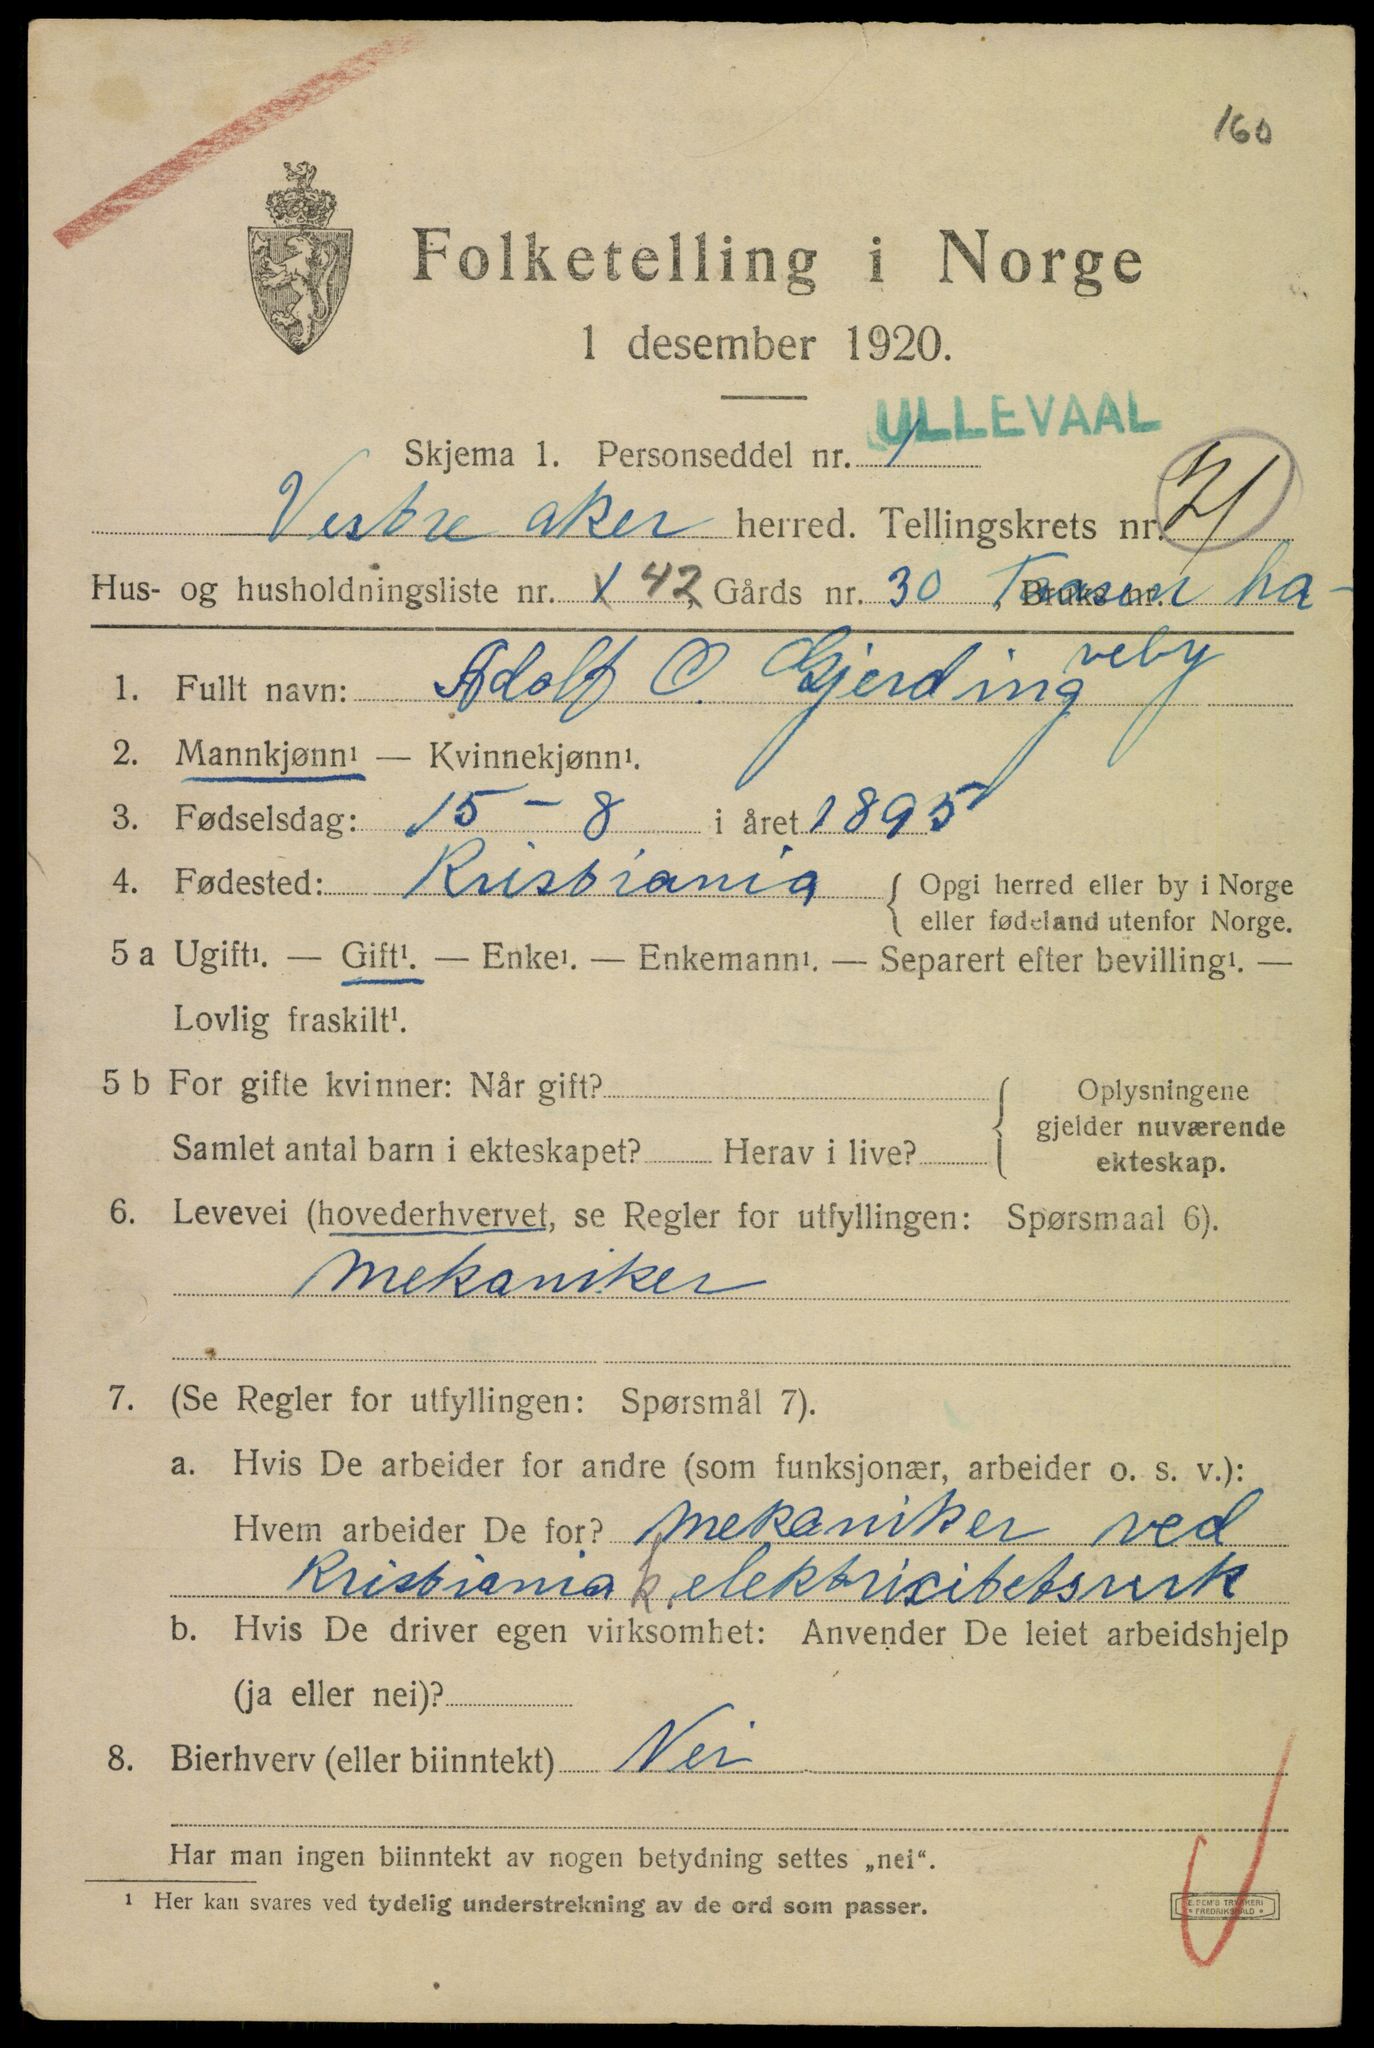 160
Folketelling i Norge
1 desember 1920.
ULLEVAAL
Skjema 1. Personseddel nr. 1
Vestre Aker herred. Tellingskrets nr.
Hus- og husholdningsliste nr. 1 42 Gårds nr. 30, Bruks nr. Taasen ha-
veby
1. Fullt navn: Adolf O. Gjerding
2. Mannkjønn¹ — Kvinnekjønn¹.
3. Fødselsdag: 15 - 8 i året 1895
4. Fødested: Kristiania { Opgi herred eller by i Norge
eller fødeland utenfor Norge.
5 a Ugift¹. — Gift¹. — Enke¹. — Enkemann¹. — Separert efter bevilling¹. —
Lovlig fraskilt¹.
5 b For gifte kvinner: Når gift? { Oplysningene
gjelder nuværende
Samlet antal barn i ekteskapet? Herav i live? ekteskap.
6. Levevei (hovederhvervet, se Regler for utfyllingen: Spørsmaal 6).
Mekaniker
7. (Se Regler for utfyllingen: Spørsmål 7).
a. Hvis De arbeider for andre (som funksjonær, arbeider o. s. v.):
Hvem arbeider De for? Mekaniker ved
Kristiania k. elektricitetsverk
b. Hvis De driver egen virksomhet: Anvender De leiet arbeidshjelp
(ja eller nei)?
8. Bierhverv (eller biinntekt) Nei
Har man ingen biinntekt av nogen betydning settes „nei“.
¹ Her kan svares ved tydelig understrekning av de ord som passer.
E. SEM'S TRYKKERI
* FREDRIKSHALD *